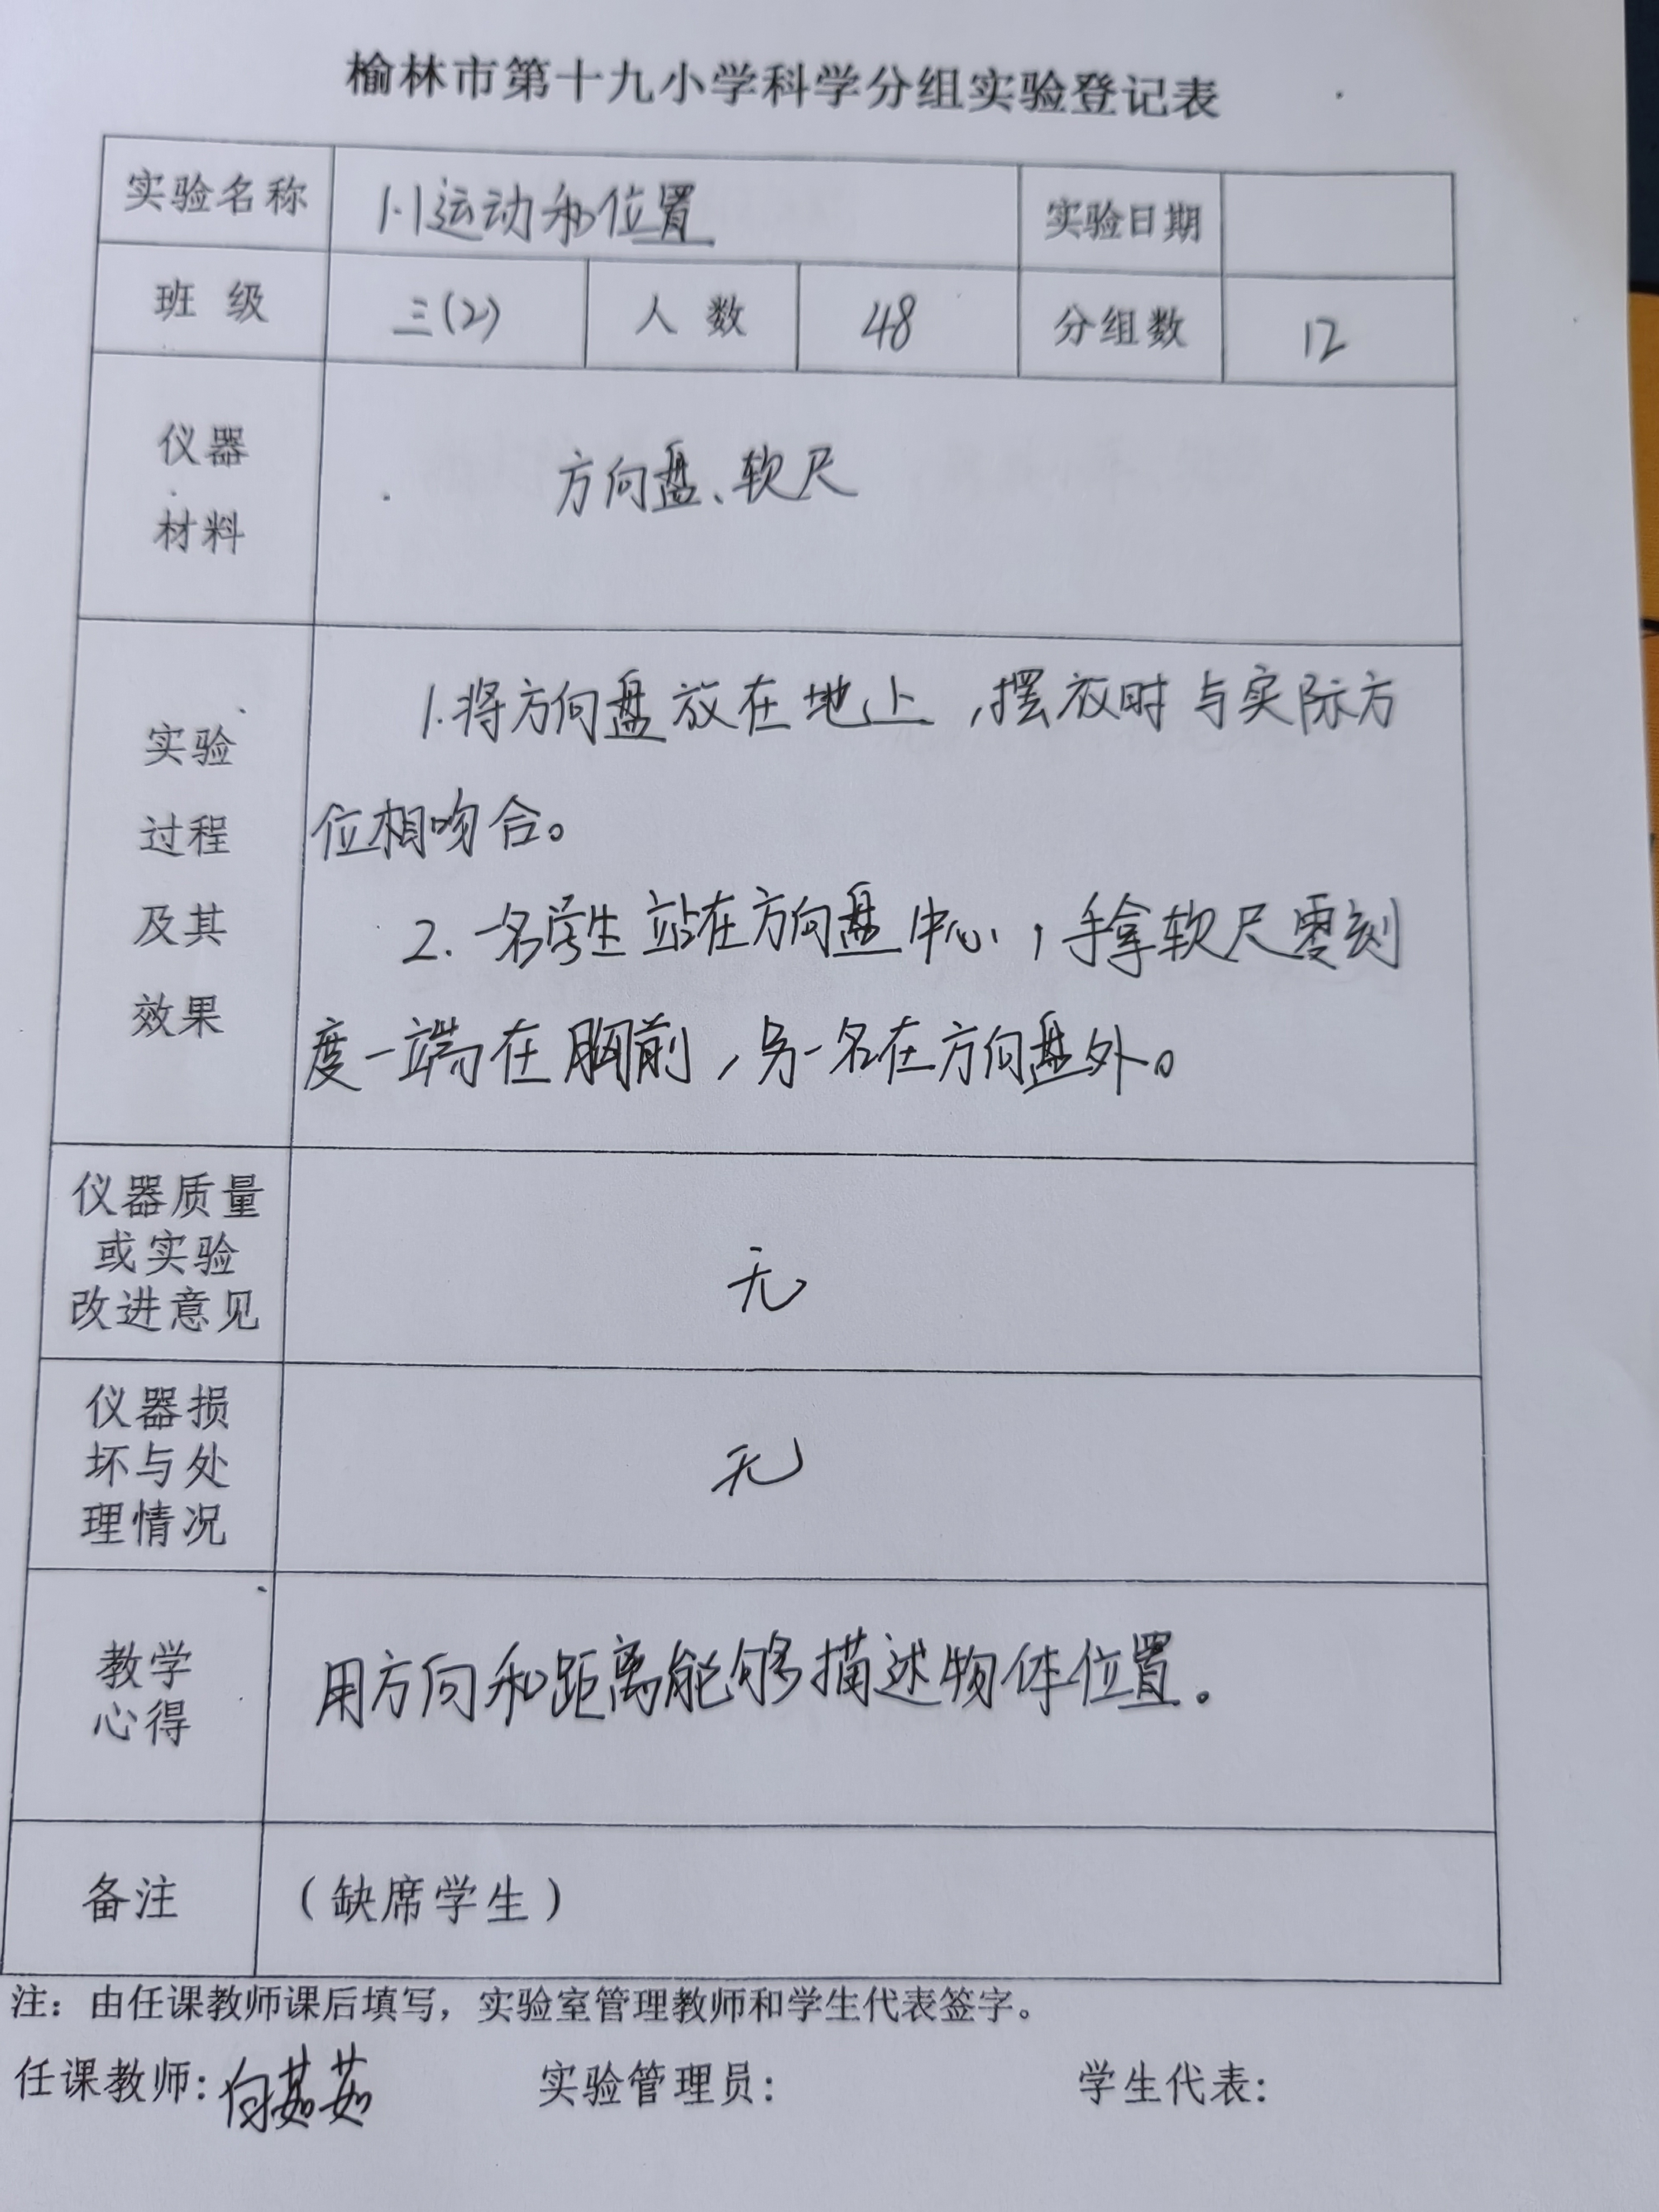 榆林市第十九小学科学分组实验登记表
实验名称 1.1运动和位置 实验日期
班 级 三(2) 人 数 48 分组数 12
仪器
材料
方向盘、软尺
实验
过程
及其
效果
1.将方向盘放在地上,摆放时与实际方
位相吻合。
2.一名学生站在方向盘中心,手拿软尺零刻
度一端在胸前,另一名在方向盘外。
仪器质量
或实验
改进意见
无
仪器损
坏与处
理情况
无
教学
心得
用方向和距离能够描述物体位置。
备注 (缺席学生)
注:由任课教师课后填写,实验室管理教师和学生代表签字。
任课教师: 白茹茹 实验管理员: 学生代表: